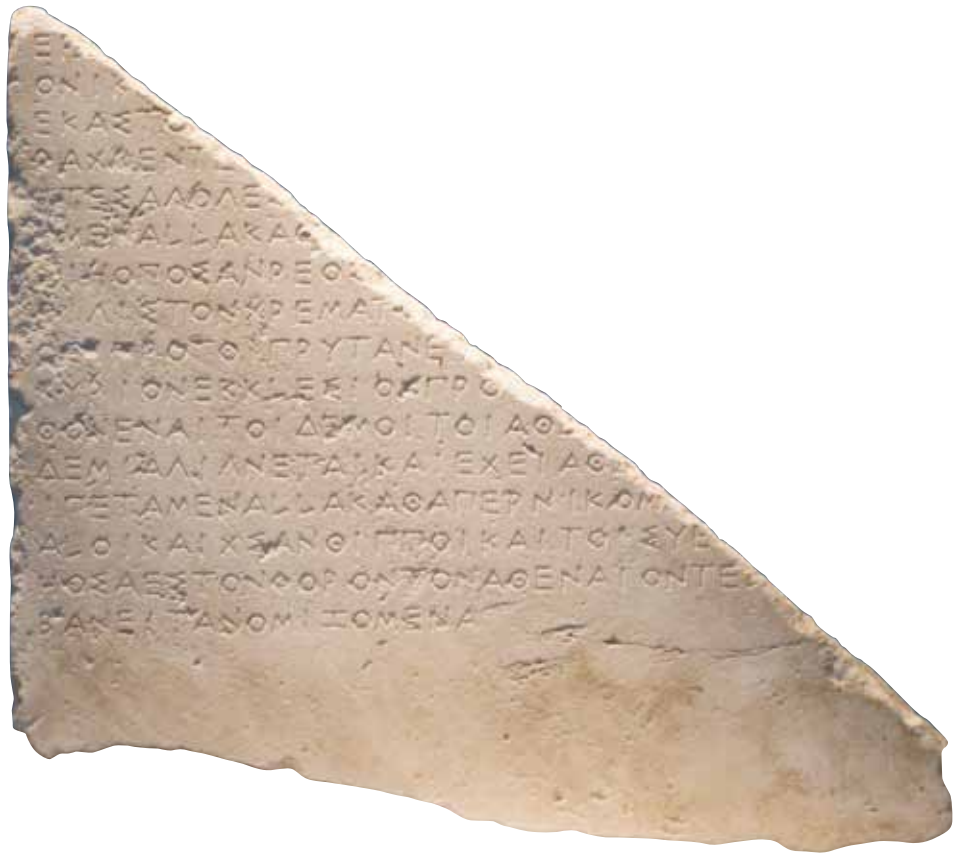 ΕΙ
ΟΝΙΚ
ΕΚΑΣΤΟ
ΡΑΧΜΕΝΤΕ
ΤΕΣΑΓΟΓΕ
ΑΜΕΝΑΛΛΑΚΑΘ
ΗΟΠΟΣΑΝΡΕΟ
ΙΣΤΟΝΧΡΕΜΑΤ
ΠΡΟΤΟΙΠΡΥΤΑΝΕ
ΚΥΡΙΟΝΕΚΚΛΕΣΙΟΑΠΡΟ
ΘΟΝΕΝΑΙΤΟΙΔΕΜΟΙΤΟΙΑΘΕ
ΔΕΜΙΑΓΙΓΝΕΤΑΙΚΑΙΕΧΕΙΑΘΕ
ΙΠΕΤΑΜΕΝΑΛΛΑΚΑΘΑΠΕΡΝΙΚΟΜ
ΑΛΟΙΚΑΙΧΣΑΝΘΙΠΠΟΙΚΑΙΤΟΙΣΥΕ
ΗΟΣΑΕΣΤΟΝΦΟΡΟΝΤΟΝΑΘΕΝΑΙΟΝΤΕ
ΒΑΝΕΝΤΑΝΟΜΙΖΟΜΕΝΑ